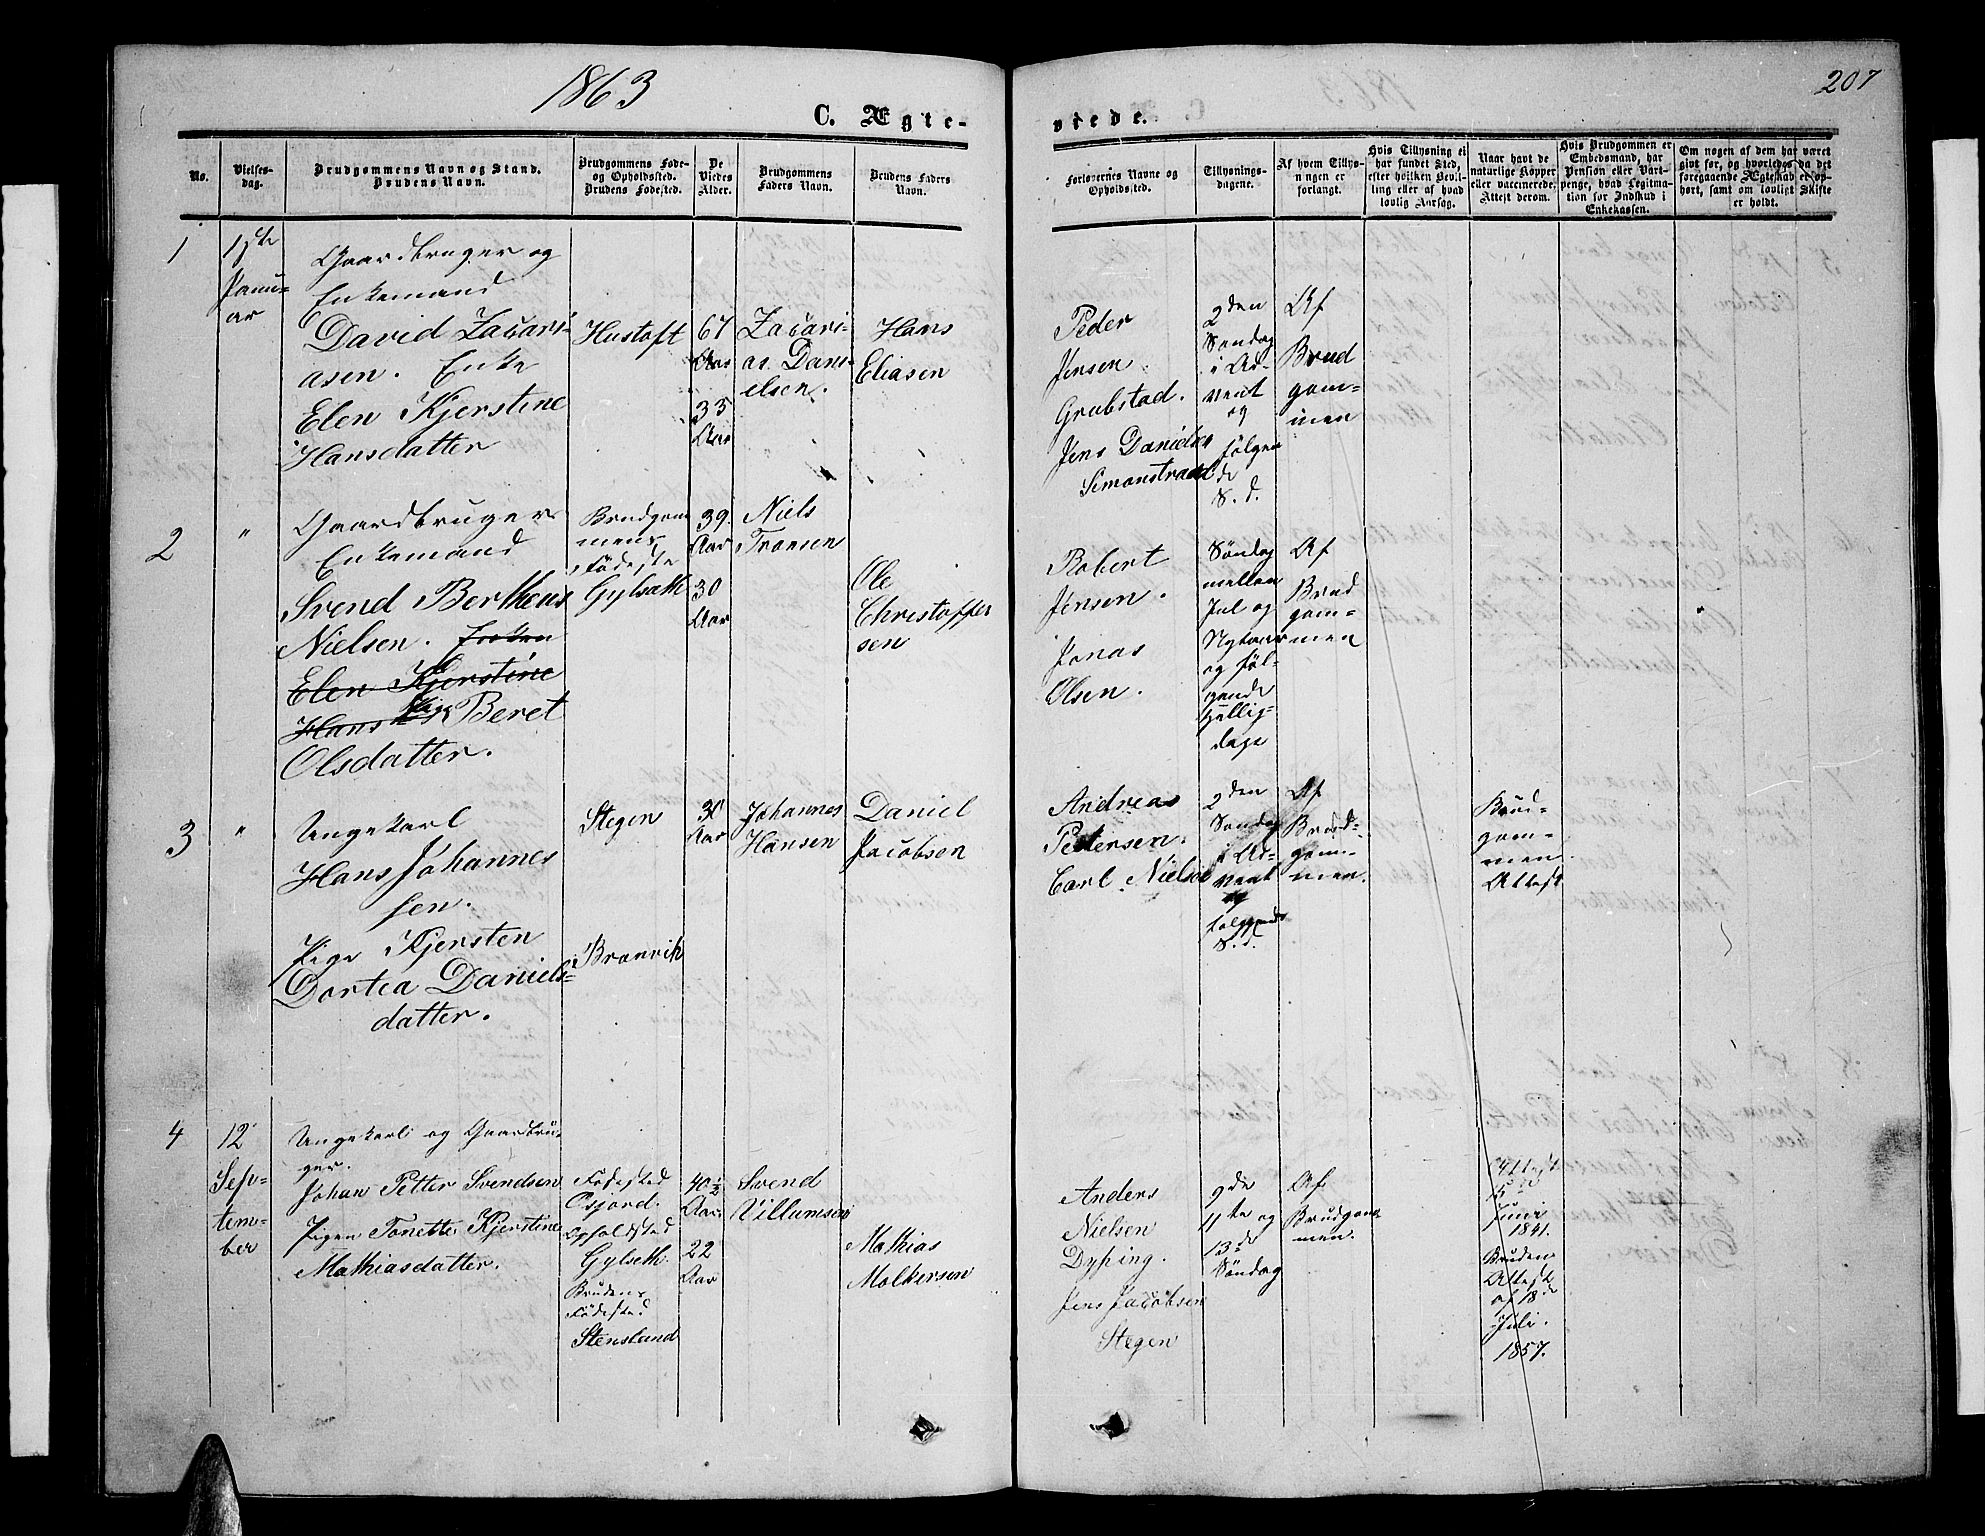 1863
207
C. Ægte-
viede.
No.
Vielses-
dag.
Brudgommens Navn og Stand.
Brudens Navn.
Brudgommens Føde-
og Opholdsted.
Brudens Fødested.
De
Viedes
Alder.
Brudgommens
Faders Navn.
Brudens Faders
Navn.
Forlovernes Navne og
Opholdsted.
Tillysnings-
dagene.
Af hvem Tillys-
ningen er
forlangt.
Hvis Tillysning ei
har fundet Sted,
efter hvilken Bevil-
ling eller af hvad
lovlig Aarsag.
Naar havt de
naturlige Kopper
eller vaccinerede,
Attest derom.
Hvis Brudgommen er
Embedsmand, har
Pension eller Vart-
penge, hvad Legitima-
tion for Indskud i
Enkekassen.
Om nogen af dem har været
gift før, og hvorledes da det
foregaaende Ægteskab er op-
hørt, samt om lovligt Skifte
er holdt.
1
Janu-
ar
Gaardbruger og
Enkemand
David Zacari-
asen. Enke
Elen Kjerstine
Hansdatter
Hustoft
67
Aar
33
Aar
Zacari-
as Dani-
elsen.
Hans
Eliasen
Peder
Jensen
Grubstad.
Jens Danielsen
Simonstrand
2den
Søndag
i Ad-
vent
og
følgen
de
S. d.
Af
Brud
gom-
men
2
"
Gaardbruger
Enkemand
Svend Bertheus
Nielsen.
Elen Kjerstine
Hans Pige Beret
Olsdatter.
Brudgom
mens
Fødeste
Gylseth
39.
Aar
30
Aar
Niels
Tronsen
Ole
Christoffer
sen
Robert
Jensen.
Jonas
Olsen.
Søndag
mellem
Jul og
Nytaar
og føl-
gende
Hellig-
dage
Af
Brud
gom-
men
3
"
Ungekarl
Hans Johannes
sen.
Pige Kjersten
Dortea Daniels-
datter.
Stegen
Branvik
30
Aar
Johannes
Hansen
Daniel
Jacobsen
Andreas
Petersen.
Carl Nielsen
2den
Søndag
i Ad-
vent
og
følgende
S. d.
Af
Brud-
gom-
men.
Brud-
gom-
men.
Attest
4
12
Sep-
tem-
ber
Ungekarl og Gaardbru-
ger.
Johan Petter Svendsen
Pigen Tonette Kjerstine
Mathiasdatter.
Fødested
Opholdsted
Gylseth
Brudens
Fødested
Stensland
40½
Aar
22
Aar
Svend
Villumsen
Mathias
Molkersen
Anders
Nielsen
Dyping.
Jens Jacobsen
Stegen
9de
11te og
13de
Søndag
Af
Brudgom
men.
Attest
Juni
1841.
Bruden
Attest
af 18de
Juli.
1857.